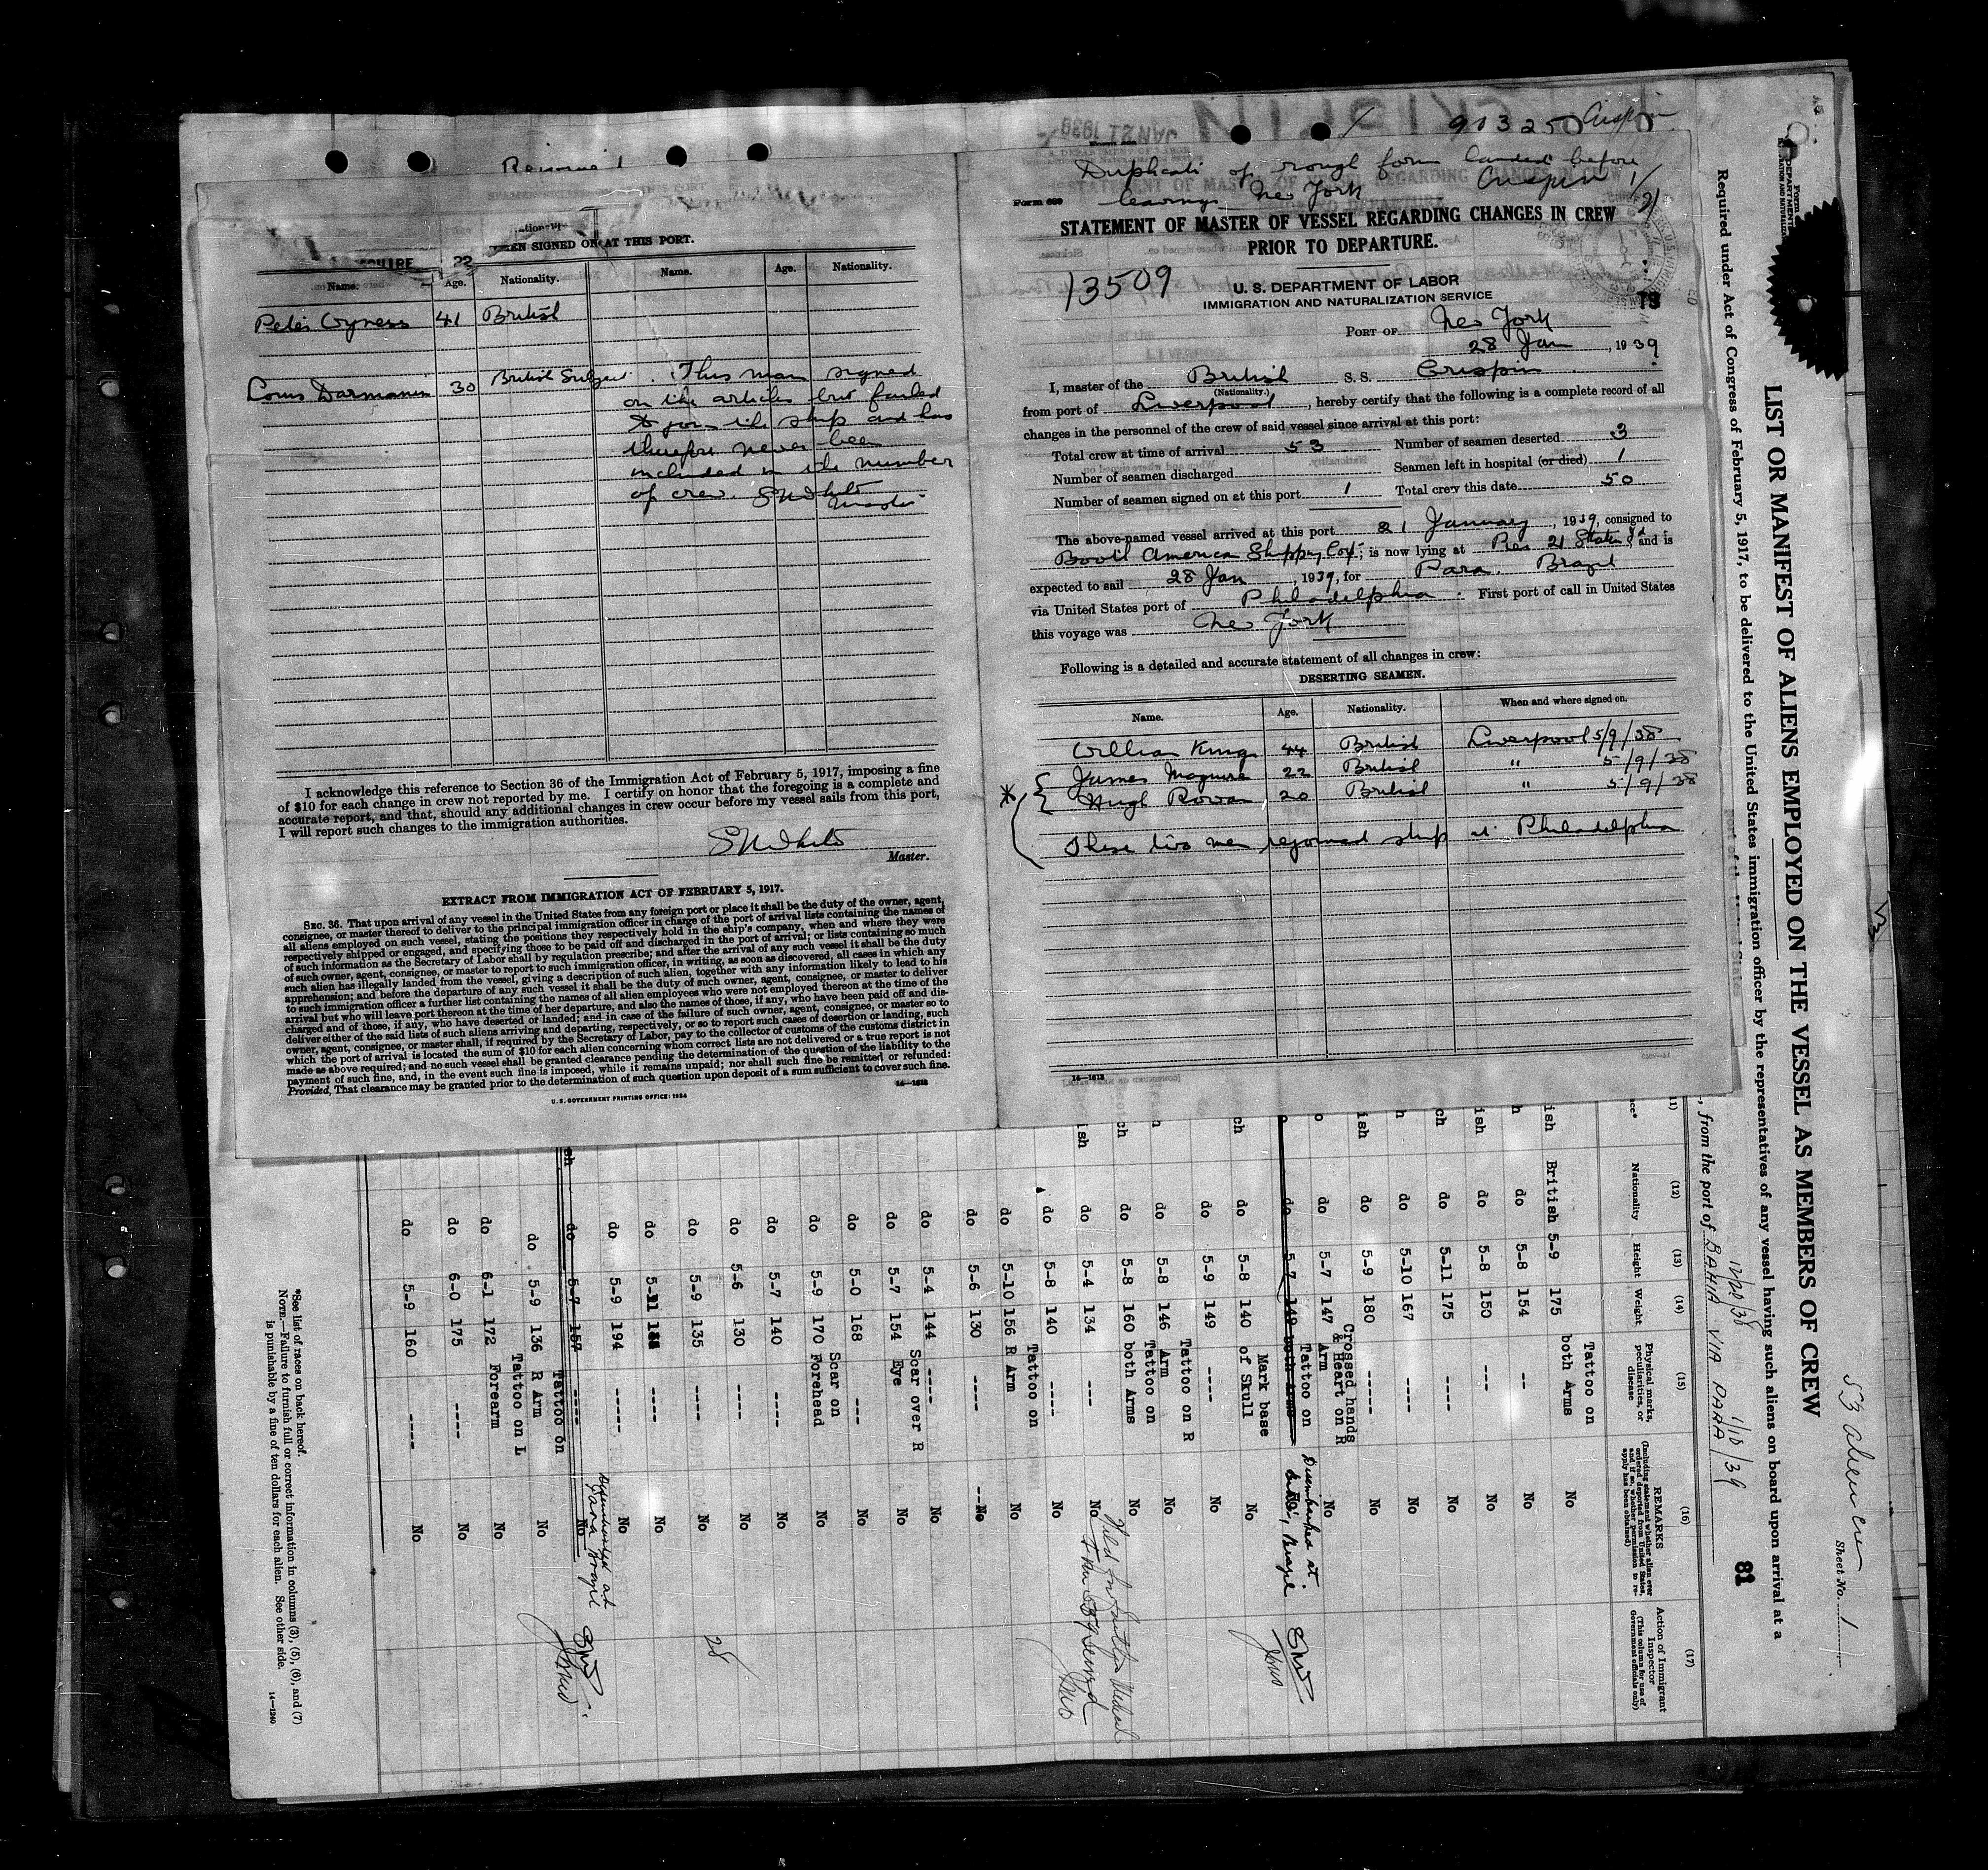 91325 Crispin
JAN 21 1939
Duplicate of rough form landed before
leaving New York Crispin 1/21
Form 689
STATEMENT OF MASTER OF VESSEL REGARDING CHANGES IN CREW
PRIOR TO DEPARTURE.
13509
U. S. DEPARTMENT OF LABOR
IMMIGRATION AND NATURALIZATION SERVICE
73
PORT OF New York
28 Jan, 1939
I, master of the British S. S. Crispin
(Nationality.)
from port of Liverpool, hereby certify that the following is a complete record of all
changes in the personnel of the crew of said vessel since arrival at this port:
Total crew at time of arrival 53 Number of seamen deserted 3
Number of seamen discharged Seamen left in hospital (or died) 1
Number of seamen signed on at this port 1 Total crew this date 50
The above-named vessel arrived at this port 21 January, 1939, consigned to
Booth America Shipping Cor; is now lying at Pier 21 Staten Id and is
expected to sail 28 Jan, 1939, for Para. Brazil
via United States port of Philadelphia. First port of call in United States
this voyage was New York
Following is a detailed and accurate statement of all changes in crew:
DESERTING SEAMEN.
Name. Age. Nationality. When and where signed on.
William King 44 British Liverpool 5/9/38
James Maguire 22 British " 5/9/38
* Hugh Rowan 20 British " 5/9/38
These two men rejoined ship at Philadelphia
14—1613
SIGNED ON AT THIS PORT.
22
Name. Age. Nationality. Name. Age. Nationality.
Peter Gyness 41 British
Louis Darmanin 30 British Subject. This man signed
on the articles but failed
to join the ship and has
therefore never been
included in the number
of crew. Master
I acknowledge this reference to Section 36 of the Immigration Act of February 5, 1917, imposing a fine
of $10 for each change in crew not reported by me. I certify on honor that the foregoing is a complete and
accurate report, and that, should any additional changes in crew occur before my vessel sails from this port,
I will report such changes to the immigration authorities.
Master.
EXTRACT FROM IMMIGRATION ACT OF FEBRUARY 5, 1917.
SEC. 36. That upon arrival of any vessel in the United States from any foreign port or place it shall be the duty of the owner, agent,
consignee, or master thereof to deliver to the principal immigration officer in charge of the port of arrival lists containing the names of
all aliens employed on such vessel, stating the positions they respectively hold in the ship's company, when and where they were
respectively shipped or engaged, and specifying those to be paid off and discharged in the port of arrival; or lists containing so much
of such information as the Secretary of Labor shall by regulation prescribe; and after the arrival of any such vessel it shall be the duty
of such owner, agent, consignee, or master to report to such immigration officer, in writing, as soon as discovered, all cases in which any
such alien has illegally landed from the vessel, giving a description of such alien, together with any information likely to lead to his
apprehension; and before the departure of any such vessel it shall be the duty of such owner, agent, consignee, or master to deliver
to such immigration officer a further list containing the names of all alien employees who were not employed thereon at the time of the
arrival but who will leave port thereon at the time of her departure, and also the names of those, if any, who have been paid off and dis-
charged and of those, if any, who have deserted or landed; and in case of the failure of such owner, agent, consignee, or master so to
deliver either of the said lists of such aliens arriving and departing, respectively, or so to report such cases of desertion or landing, such
owner, agent, consignee, or master shall, if required by the Secretary of Labor, pay to the collector of customs of the customs district in
which the port of arrival is located the sum of $10 for each alien concerning whom correct lists are not delivered or a true report is not
made as above required; and no such vessel shall be granted clearance pending the determination of the question of the liability to the
payment of such fine, and, in the event such fine is imposed, while it remains unpaid; nor shall such fine be remitted or refunded:
Provided, That clearance may be granted prior to the determination of such question upon deposit of a sum sufficient to cover such fine.
14—1613
U. S. GOVERNMENT PRINTING OFFICE: 1934
53 alien crew
Sheet No. 1
LIST OR MANIFEST OF ALIENS EMPLOYED ON THE VESSEL AS MEMBERS OF CREW
Required under Act of Congress of February 5, 1917, to be delivered to the United States immigration officer by the representatives of any vessel having such aliens on board upon arrival at a
81
12/28/38 1/10/39
, from the port of BAHIA VIA PARA
(12) (13) (14) (15) (16) (17)
Nationality Height Weight Physical marks, peculiarities, or disease REMARKS (Including statement whether alien ever ordered deported from United States, and if so, whether permission to re-apply has been obtained) Action of Immigrant Inspector (This column for use of Government officials only)
British 5-9 175 Tattoo on both Arms No
do 5-8 154 -- No
do 5-8 150 --- No
do 5-11 175 ---- No
do 5-10 167 ---- No
do 5-9 180 ----- No
do 5-7 147 Crossed hands & Heart on R Arm No
do 5-7 149 Tattoo on both Arms No Disembarked at Brazil
do 5-8 140 Mark base of Skull No
do 5-9 149 ---- No
do 5-8 146 Tattoo on R Arm No
do 5-8 160 Tattoo on both Arms No
do 5-4 134 --- No
do 5-8 140 ---- No
do 5-10 156 Tattoo on R Arm No
do 5-6 130 ---- No
do 5-4 144 ---- No
do 5-7 154 Scar over R Eye No
do 5-0 168 --- No
do 5-9 170 Scar on Forehead No
do 5-7 140 ---- No
do 5-6 130 ---- No 28
do 5-9 135 ---- No
do 5-11 ---- No
do 5-9 194 ----- No
do 5-7 157 ---- No Disembarked at Para Brazil
do 5-9 136 Tattoo on R Arm No
do 6-1 172 Tattoo on L Forearm No
do 6-0 175 ---- No
do 5-9 160 ---- No
*See list of races on back hereof.
NOTE.—Failure to furnish full or correct information in columns (3), (5), (6), and (7)
is punishable by a fine of ten dollars for each alien. See other side.
14—1240